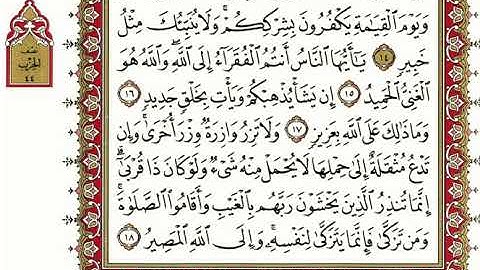 وَيَوْمَ ٱلْقِيَٰمَةِ يَكْفُرُونَ بِشِرْكِكُمْ ۚ وَلَا يُنَبِّئُكَ مِثْلُ
خَبِيرٍ ١٤ ۞ يَٰٓأَيُّهَا ٱلنَّاسُ أَنتُمُ ٱلْفُقَرَآءُ إِلَى ٱللَّهِ ۖ وَٱللَّهُ هُوَ
ٱلْغَنِىُّ ٱلْحَمِيدُ ١٥ إِن يَشَأْ يُذْهِبْكُمْ وَيَأْتِ بِخَلْقٍ جَدِيدٍ ١٦
وَمَا ذَٰلِكَ عَلَى ٱللَّهِ بِعَزِيزٍ ١٧ وَلَا تَزِرُ وَازِرَةٌ وِزْرَ أُخْرَىٰ ۚ وَإِن
تَدْعُ مُثْقَلَةٌ إِلَىٰ حِمْلِهَا لَا يُحْمَلْ مِنْهُ شَىْءٌ وَلَوْ كَانَ ذَا قُرْبَىٰٓ ۗ
إِنَّمَا تُنذِرُ ٱلَّذِينَ يَخْشَوْنَ رَبَّهُم بِٱلْغَيْبِ وَأَقَامُوا۟ ٱلصَّلَوٰةَ ۚ
وَمَن تَزَكَّىٰ فَإِنَّمَا يَتَزَكَّىٰ لِنَفْسِهِۦ ۚ وَإِلَى ٱللَّهِ ٱلْمَصِيرُ ١٨
نصف
الحزب
٤٤